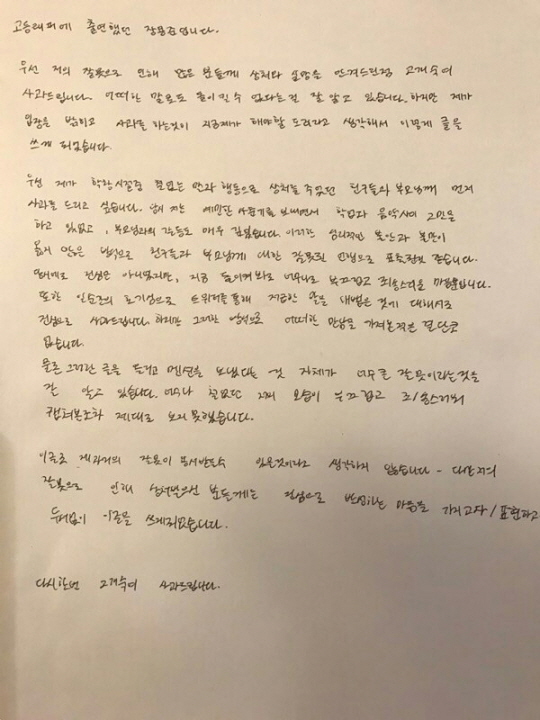 고등래퍼에 출연했던 장용준입니다.
우선 저의 잘못으로 인해 많은 분들께 상처와 실망을 안겨드린점 고개숙여
사과드립니다. 어떠한 말로도 용서될 수 없다는걸 잘 알고 있습니다. 하지만 제가
입장을 밝히고 사과를 하는것이 지금제가 해야할 도리라고 생각해서 이렇게 글을
쓰게 되었습니다.
우선 제가 학창시절중 철없는 말과 행동으로 상처를 주었던 친구들과 부모님께 먼저
사과를 드리고 싶습니다. 당시 저는 예민한 사춘기를 보내면서 학업과 음악사이 고민을
하고 있었고, 부모님과의 갈등도 매우 깊었습니다. 이러한 심리적인 불안과 불만이
옳지 않은 방식으로 친구들과 부모님께 대한 잘못된 언행으로 표출된것 같습니다.
절대로 진심은 아니었지만, 지금 돌이켜보니 너무나도 부끄럽고 죄송스러운 마음뿐입니다.
또한 일순간의 호기심으로 트위터를 통해 저급한 말을 내뱉은 것에 대해서도
진심으로 사과드립니다. 하지만 그러한 방식으로 어떠한 만남을 가져본적은 결단코
없습니다.
물론 그러한 글을 올리고 멘션을 보냈다는 것 자체가 너무 큰 잘못이라는것을
잘 알고 있습니다. 너무나 철없던 제 모습이 부끄럽고 죄송스러워
캡쳐본조차 제대로 보지 못했습니다.
이글로 제 과거의 잘못이 용서받을수 있을것이라고 생각하지 않습니다 - 다만 저의
잘못으로 인해 상처받으신 분들께는 진심으로 반성하는 마음을 가지고 사과/표현하고
두서없이 이글을 쓰게되었습니다.
다시한번 고개숙여 사과드립니다.